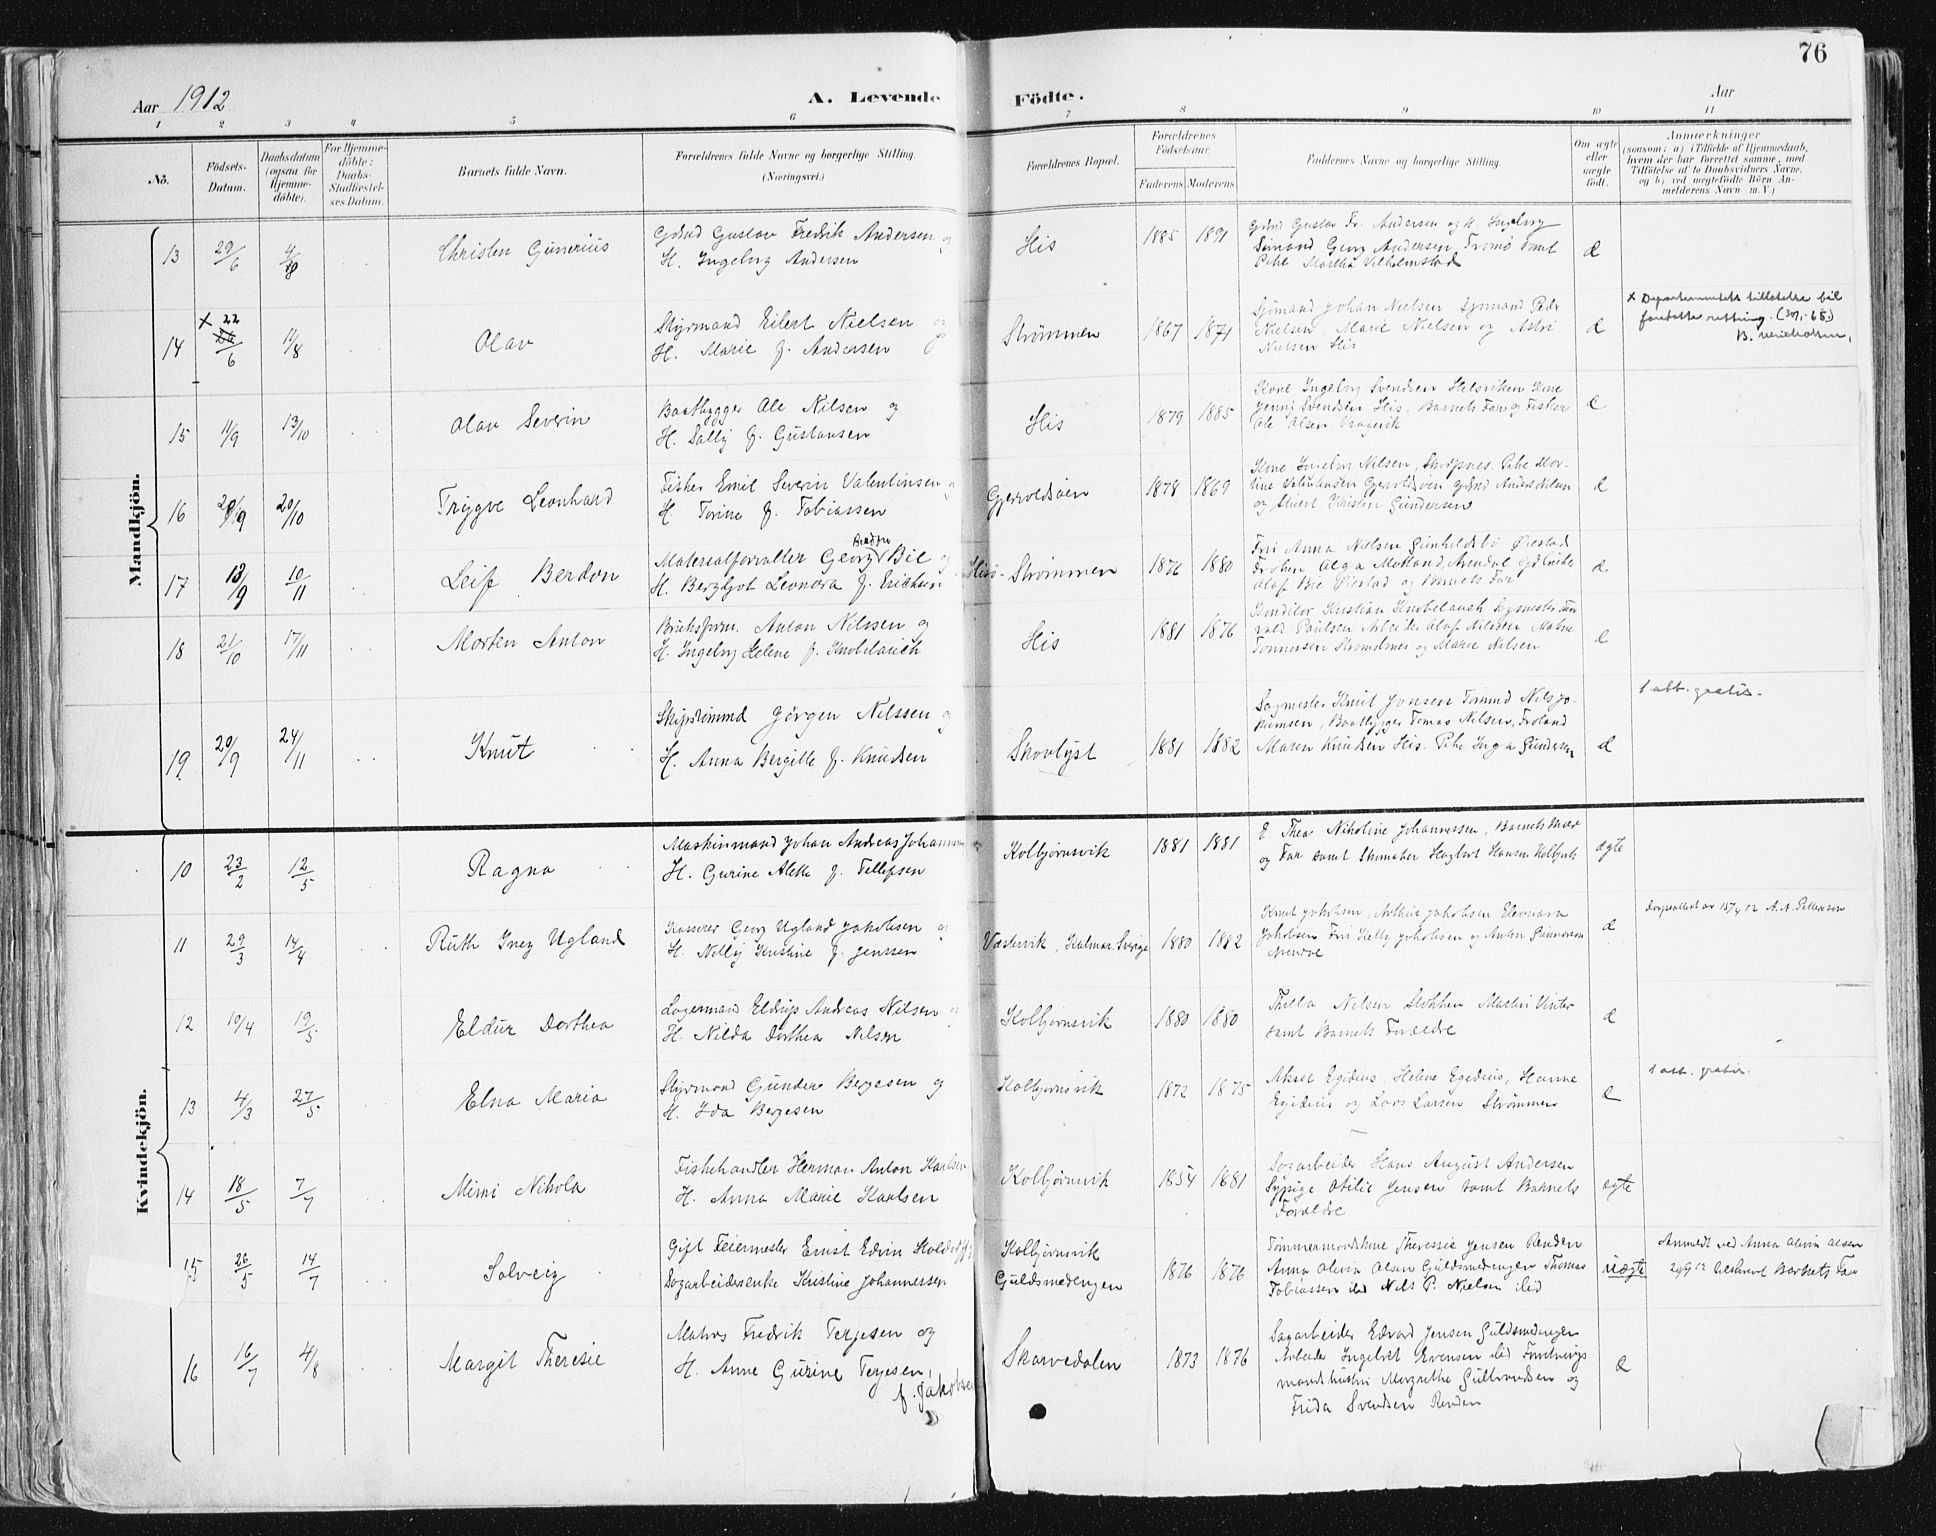 76
Aar 1912
A. Levende Födte.
Aar
1 2 3 4 5 6 7 8 9 10 11
No.
Födsels-Datum.
Daabsdatum (ogsaa for Hjemme-döbte).
For Hjemme-döbte: Daabs-Stadfæstel-ses Datum.
Barnets fulde Navn.
Forældrenes fulde Navne og borgerlige Stilling (Næringsvei.)
Forældrenes Bopæl.
Forældrenes Födselsaar.
Faderens Moderens
Faddernes Navne og borgerlige Stilling.
Om ægte eller uægte födt.
Anmærkninger
(saasom: a) i Tilfælde af Hjemmedaab, hvem der har forrettet samme, med Tilföielse af to Daabsvidners Navne, og b) ved uægtefödte Börn An-melderens Navn m. V.)
Mandkjön.
13 29/6 Christen Gunerius
Gustav Fredrik Andersen og
H. Ingeborg Andersen
His 1885 1891
Gustav Fr. Andersen og H. Ingeborg
Sømand Georg Andersen, Tromø samt
Pike Martha Vilhelmstad
Æ
14 x 22/6 11/8 Olav
Styrmand Eilert Nielsen og
H. Marie f. Andersen
Strømmen 1867 1871
Sjømand Johan Nielsen Sjømand Peder
Nielsen, Marie Nielsen og Astri
Nielsen His
Æ
x Departementets tillatelse til
foretatte rettning.
15 11/9 13/10 Olav Severin
Baatbygger Ole Nilsen og
H. Sally f. Gustavsen
His 1879 1885
Kone Ingeborg Svendsen Helsviken, Kone
Jenny Svendsen His. Barnets Far og Fisker
Ole Olsen
Æ
16 20/10 Trygve Leonhard
Fisker Emil Severin Valentinsen og
H Torine f. Tobiassen
Gjervoldsøen 1878 1869
Kone Ingeborg Nilsen, Pike
Valentinsen Gjervoldsøen
og Kristin Gundersen
Æ
17 18/9 10/11 Leif Berdon
Materialforvalter Georg Berdon Bie og
H. Bergljot Leonora f. Erichsen
Hisø-Strømmen 1876 1880
Fru Anna Nielsen Øiestad
Frøken Olga Arendal
Olaf Bie Øiestad og Barnets Far
Æ
18 21/10 17/11 Morten Anton
Anton Nilssen og
H. Ingeborg Helene f. Knobelauch
His 1881 1876
Kristian Knobelauch Sagmester
Paulsen Arbeider Olaf Nilssen
Tønnessen og Marie Nilsen
Æ
19 29/9 24/11 Knut
Skipstømmd Jörgen Nilssen og
H. Anna Bergitte f. Knudsen
Skovlyst 1881 1882
Sagmester Knut Jonsen Tømmd Nils
Baatbygger Tomas Nilsen, Froland
Maren Knudsen His. Pike Inga Gundersen
Æ
1 att. gratis.
Kvindekjön.
10 23/2 12/5 Ragna
Maskinmand Johan Andreas Johannessen
H. Gurine Alette f. Tellefsen
Kolbjørnsvik 1881 1881
E Thea Nikoline Johannessen, Barnets Mor
og Far samt Skomaker Hagbart Hansen Kolbjvk
ægte
11 29/3 14/4 Ruth Inez Ugland
Kasserer Georg Ugland Jakobsen og
H. Nelly Kristine f. Jenssen
Vestervik, Kalmar. Sverige 1880 1882
Knut Jakobsen, Arthur Jakobsen Eleonora
Jakobsen Fru Kelly Jakobsen og Anton Gunnersen
Arendal
Æ
12 19/4 19/5 Eldur Dorthea
Lagermand Eldrup Andreas Nilsen og
H. Nilda Dorthea Nilsen
Kolbjørnsvik 1880 1880
Thella Nilsen Stokken Martin Vinter
samt Barnets Forældre
Æ
13 4/3 27/5 Elna Maria
Styrmand Gunder Bergesen og
H. Ida Bergesen
Kolbjørnsvik 1872 1875
Aksel Egidius. Helene Egidius, Hanne
Egidius og Lars Larsen Strømmen
Æ
1 att. gratis.
14 18/5 7/7 Mimi Nikola
Fiskehandler Herman Anton Karlsen
H. Anna Marie Karlsen
Kolbjørnsvik 1854 1881
Sagarbeider Hans August Andersen
Sypige Otilie Jensen samt Barnets
Forældre
ægte
15 26/5 14/7 Solveig
Gift Feiermester Ernst Edvin
Sagarbeiderenke Kristine Johannessen
Kolbjørnsvik
Guldsmedengen 1876 1876
Tømmermandskone Theressie Jensen Renden
Anna Olivia Olsen Guldsmedengen Thomas
Tobiassen ibid Nils P. Nielsen ibid
uægte
Anmeldt ved Anna Olivia Olsen
Barnets Far
16 16/7 4/8 Margit Theresie
Matros Fredrik Terjesen og
H. Anne Gurine Terjesen,
f. Jakobsen
Skarvedalen 1873 1876
Sagarbeider Edvard Jensen Guldsmedengen
Arbeider Ingebret Evensen ibid
Margrethe Gulbrandsen og
Frida Svendsen Renden
Æ